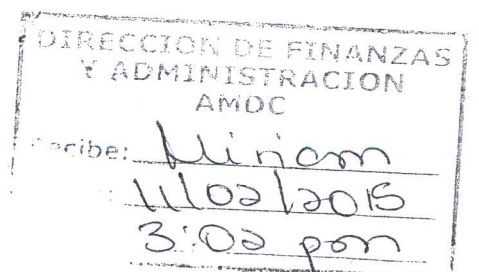 DIRECCION DE FINANZAS
Y ADMINISTRACION
AMDC
Recibe: Miriam
11/02/2015
3:02 pm